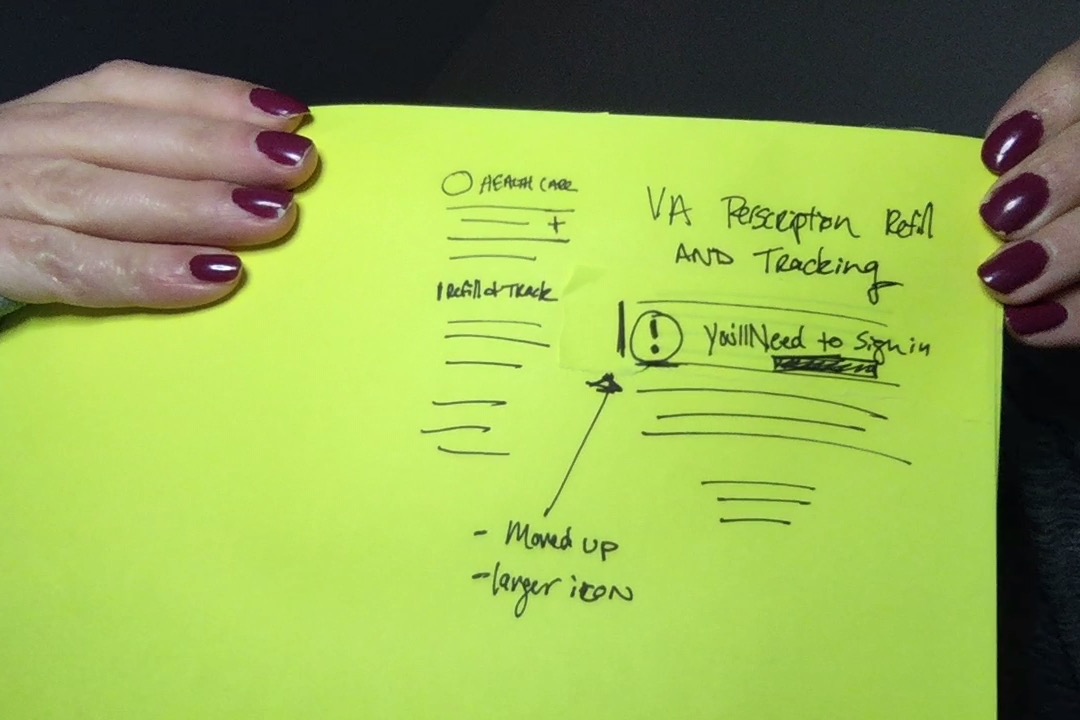 HEALTH CARE
+
Refill & Track
VA Perscription Refill
AND Tracking
! You'll Need to Sign in
- Moved up
- larger icon